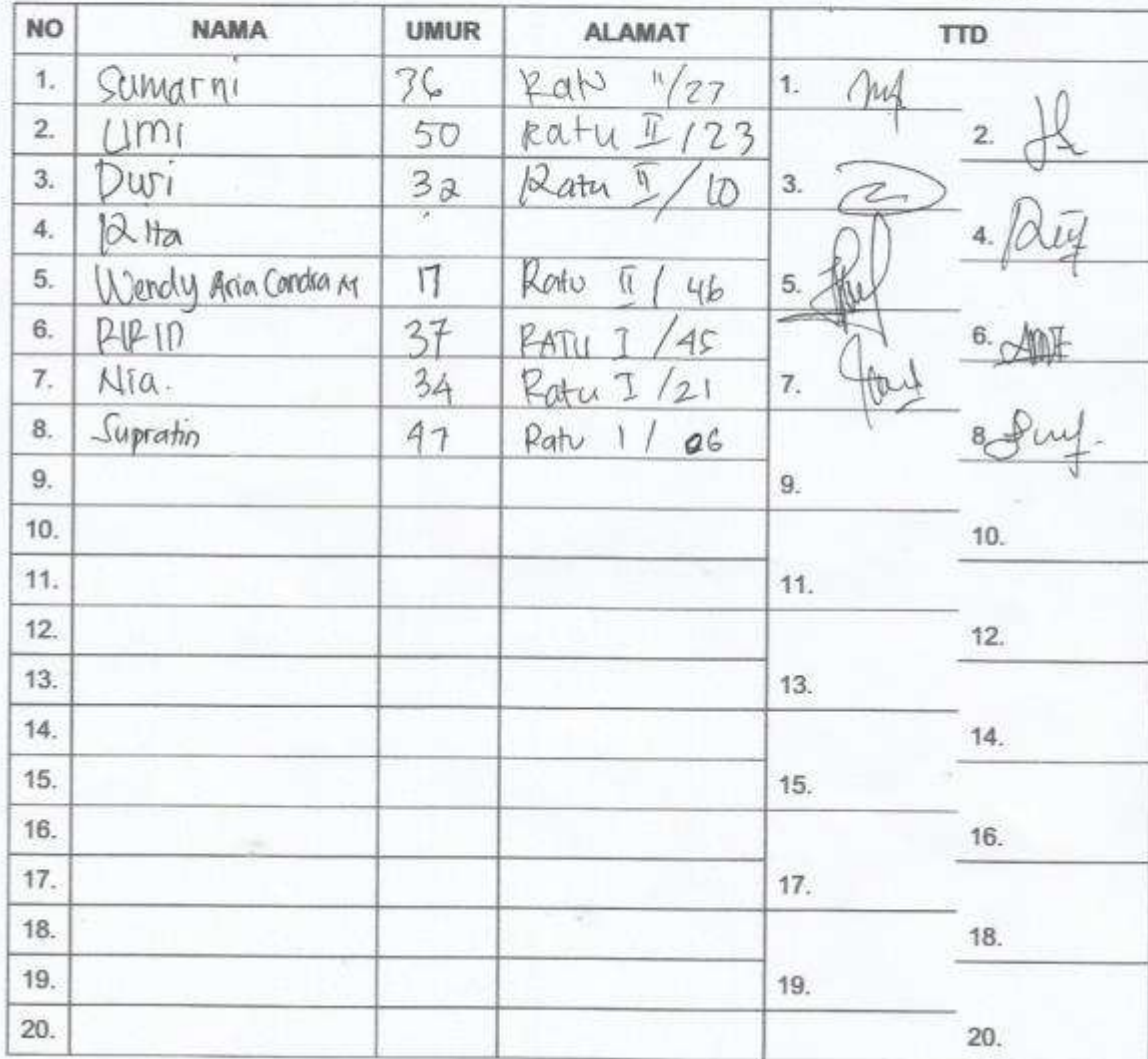 NO NAMA UMUR ALAMAT TTD
1. Sumarni 36 Ratu II/27 1.
2. Umi 50 Ratu II/23 2.
3. Dwi 32 Ratu II/10 3.
4. Rita 4.
5. Wendy Aria Candra M 17 Ratu II/46 5.
6. RIRIN 37 RATU I/45 6.
7. Nia. 34 Ratu I/21 7.
8. Supratin 47 Ratu I/06 8.
9. 9.
10. 10.
11. 11.
12. 12.
13. 13.
14. 14.
15. 15.
16. 16.
17. 17.
18. 18.
19. 19.
20. 20.